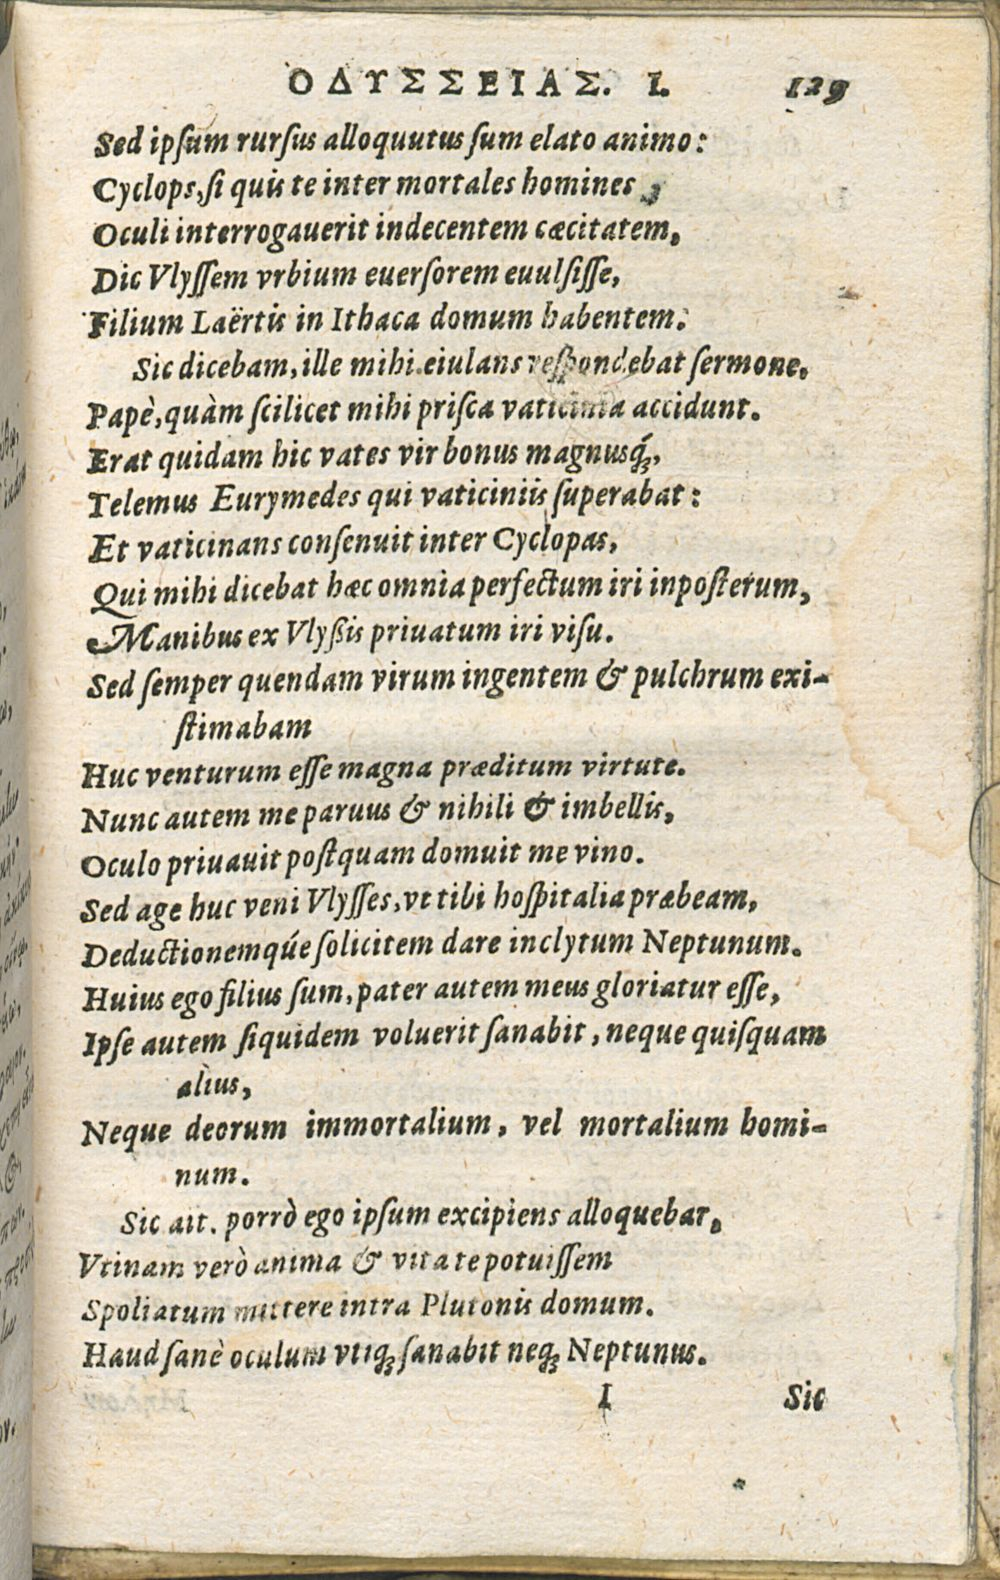 ΟΔΥΣΣΕΙΑΣ. I. 129
Sed ipſum rurſus alloquutus ſum elato animo:
Cyclops, ſi quis te inter mortales homines,
Oculi interrogauerit indecentem cæcitatem,
Dic Vlyſſem vrbium euerſorem euulſiſſe,
Filium Laërtis in Ithaca domum habentem.
Sic dicebam, ille mihi eiulans reſpondebat ſermone.
Papè, quàm ſcilicet mihi priſca vaticinia accidunt.
Erat quidam hic vates vir bonus magnusq́;,
Telemus Eurymedes qui vaticiniis ſuperabat:
Et vaticinans conſenuit inter Cyclopas,
Qui mihi dicebat hæc omnia perfectum iri in poſterum,
Manibus ex Vlyßis priuatum iri viſu.
Sed ſemper quendam virum ingentem & pulchrum exi-
ſtimabam
Huc venturum eſſe magna præditum virtute.
Nunc autem me paruus & nihili & imbellis,
Oculo priuauit poſtquam domuit me vino.
Sed age huc veni Vlyſſes, vt tibi hoſpitalia præbeam,
Deductionemq́ue ſolicitem dare inclytum Neptunum.
Huius ego filius ſum, pater autem meus gloriatur eſſe,
Ipſe autem ſiquidem voluerit ſanabit, neque quiſquam
alius,
Neque deorum immortalium, vel mortalium homi-
num.
Sic ait. porrò ego ipſum excipiens alloquebar,
Vtinam verò anima & vita te potuiſſem
Spoliatum mittere intra Plutonis domum.
Haud ſanè oculum vtiq; ſanabit neq; Neptunus.
I Sic